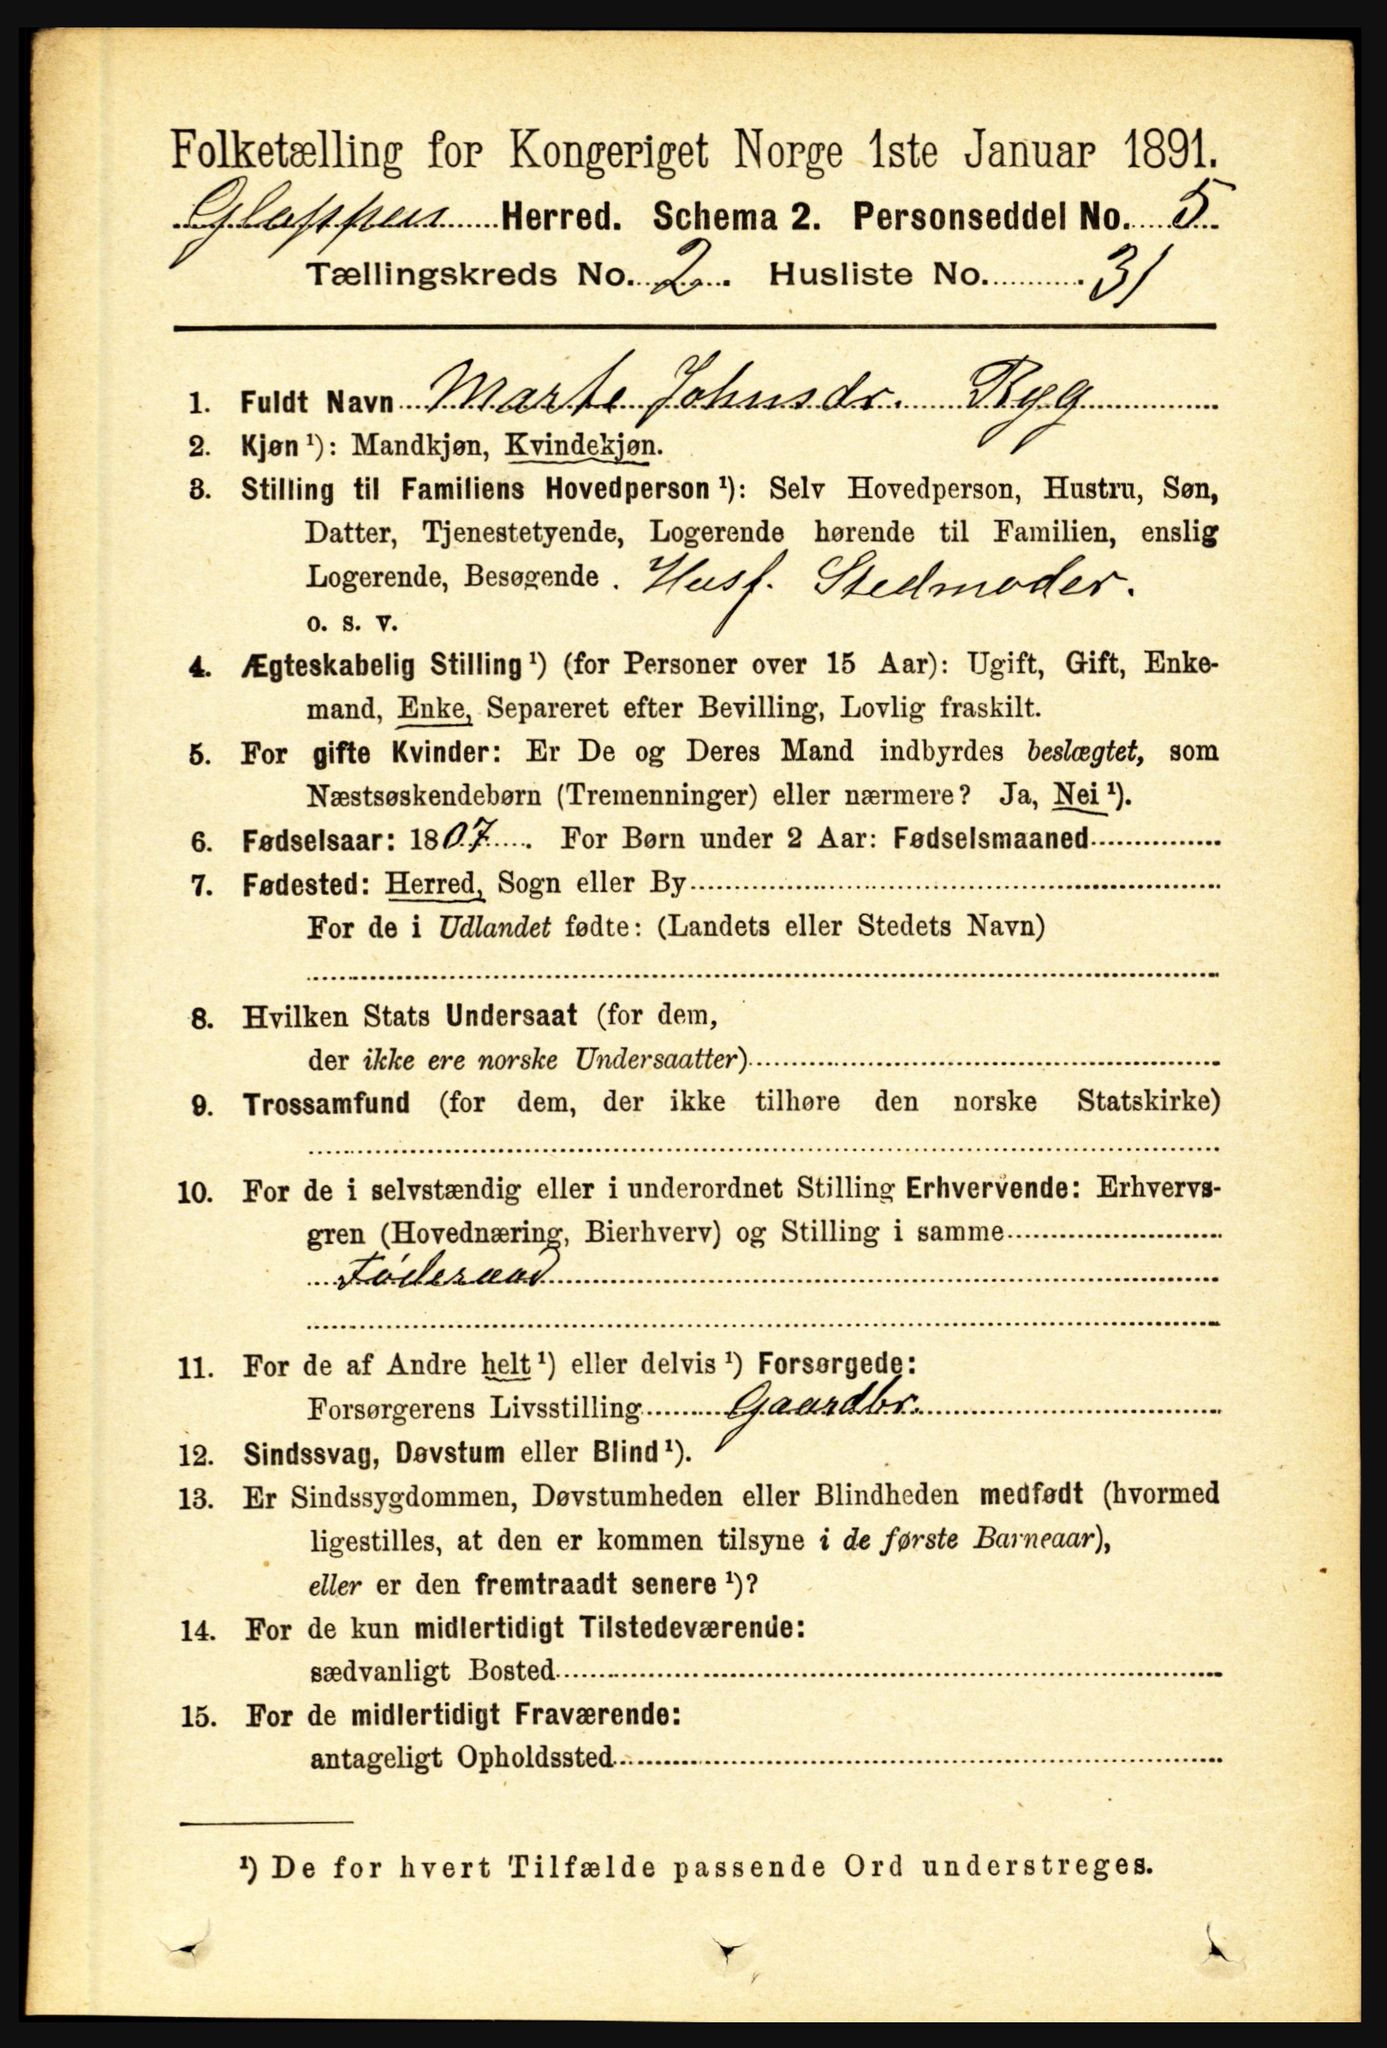 Folketælling for Kongeriget Norge 1ste Januar 1891.
Gloppen Herred. Schema 2. Personseddel No. 5
Tællingskreds No. 2. Husliste No. 31
1. Fuldt Navn Marte Johnsdr. Ryg
2. Kjøn ¹): Mandkjøn, Kvindekjøn.
3. Stilling til Familiens Hovedperson ¹): Selv Hovedperson, Hustru, Søn,
Datter, Tjenestetyende, Logerende hørende til Familien, enslig
Logerende, Besøgende . Husf. Stedmoder.
o. s. v.
4. Ægteskabelig Stilling ¹) (for Personer over 15 Aar): Ugift, Gift, Enke-
mand, Enke, Separeret efter Bevilling, Lovlig fraskilt.
5. For gifte Kvinder: Er De og Deres Mand indbyrdes beslægtet, som
Næstsøskendebørn (Tremenninger) eller nærmere? Ja, Nei ¹).
6. Fødselsaar: 1807. For Børn under 2 Aar: Fødselsmaaned
7. Fødested: Herred, Sogn eller By
For de i Udlandet fødte: (Landets eller Stedets Navn)
8. Hvilken Stats Undersaat (for dem,
der ikke ere norske Undersaatter)
9. Trossamfund (for dem, der ikke tilhøre den norske Statskirke)
10. For de i selvstændig eller i underordnet Stilling Erhvervende: Erhvervs-
gren (Hovednæring, Bierhverv) og Stilling i samme
Føderaad
11. For de af Andre helt ¹) eller delvis ¹) Forsørgede:
Forsørgerens Livsstilling Gaardbr.
12. Sindssvag, Døvstum eller Blind ¹).
13. Er Sindssygdommen, Døvstumheden eller Blindheden medfødt (hvormed
ligestilles, at den er kommen tilsyne i de første Barneaar),
eller er den fremtraadt senere ¹)?
14. For de kun midlertidigt Tilstedeværende:
sædvanligt Bosted
15. For de midlertidigt Fraværende:
antageligt Opholdssted
¹) De for hvert Tilfælde passende Ord understreges.